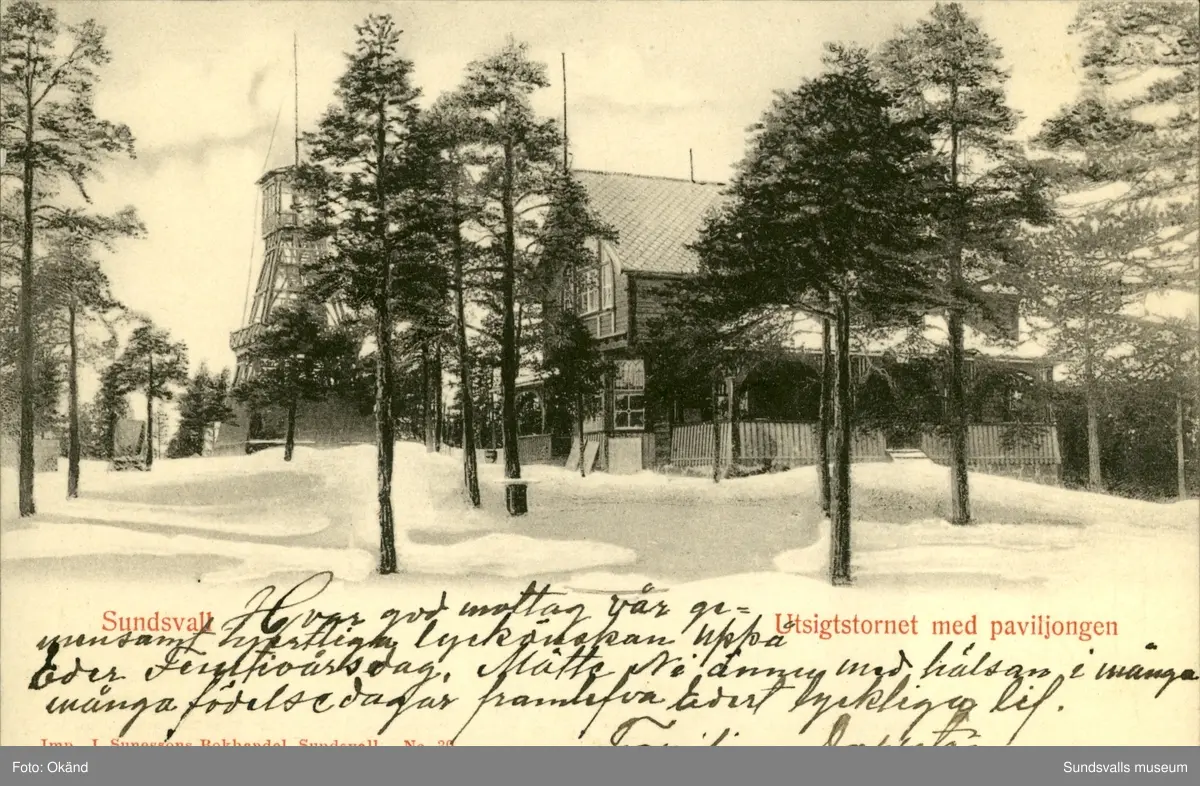 Sundsvall
Utsigtstornet med paviljongen
Hvar god mottag vår ge=
mensamt hjertliga lyckönskan uppå
Eder Femtioårsdag. Måtte Ni ännu med hälsan i många
många födelsedagar framlefva Edert lyckliga lif.
Imp. J. Sunessons Bokhandel, Sundsvall. No. 20
Familjen
Foto: Okänd
Sundsvalls museum